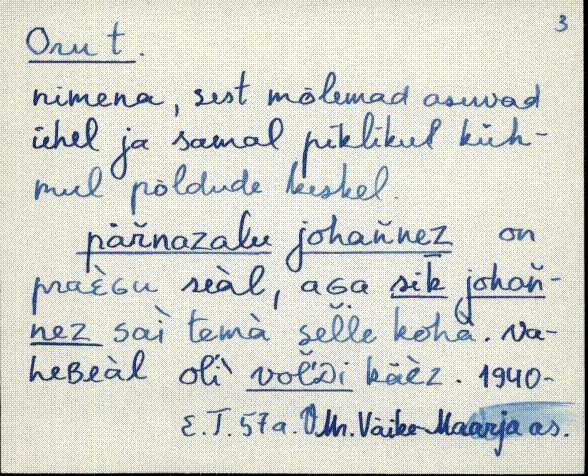 3
Oru t.
nimena, sest mõlemad asuvad
ühel ja samal piklikul küh-
mul põldude keskel.
pär̆nazalu johan̆nez on
praèGu seàl, aGa sik̄ johan̆-
nez saì temà sel̆le kohà. Va-
heBeàl olì vol̆Di käèz. 1940-
E.T. 57 a. Mr. Väike-Maarja as.